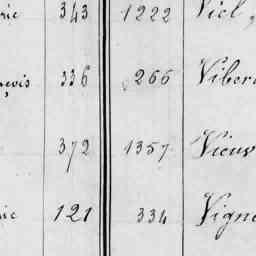 343 1222 Viel,
336 266 Viber
372 1357 Vieuv
121 334 Vigne